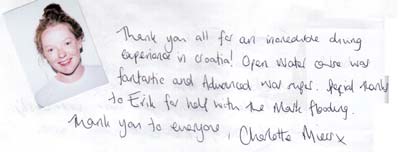 Thank you all for an incredible diving
experience in Croatia! Open Water course was
fantastic and Advanced was super. Special thanks
to Erik for help with the Mask flooding.
Thank you to everyone, Charlotte x